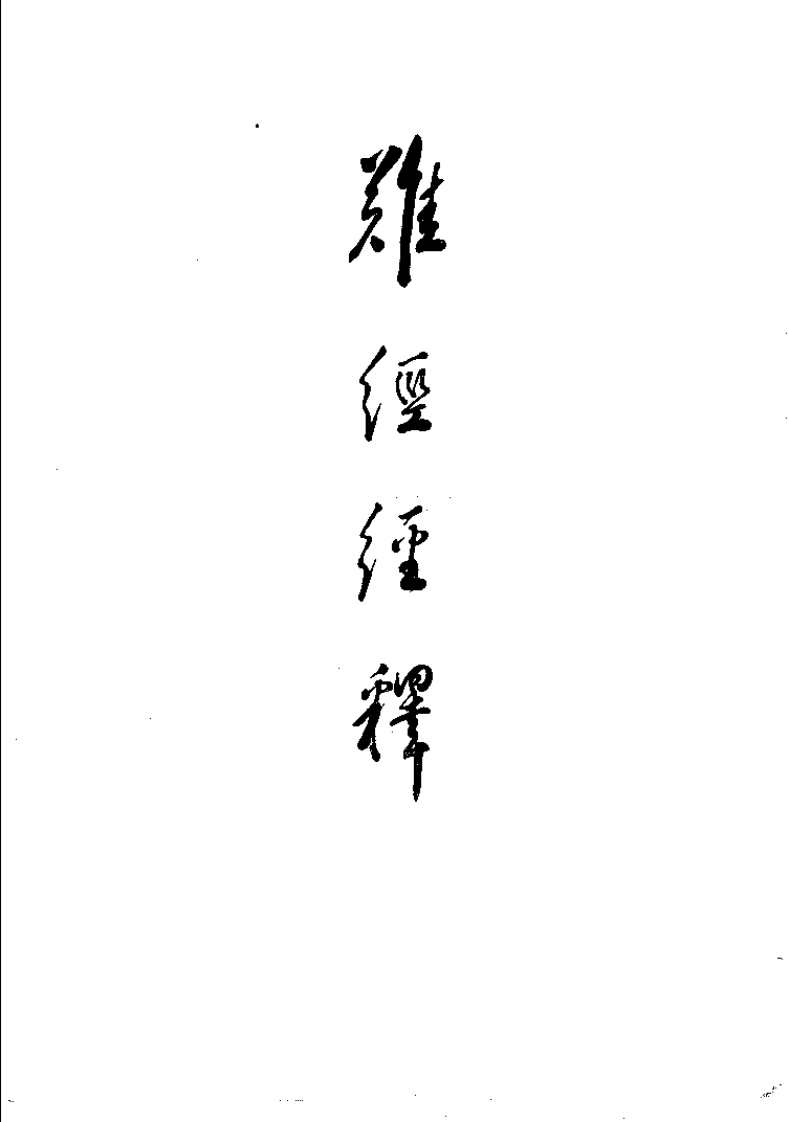 難經經釋